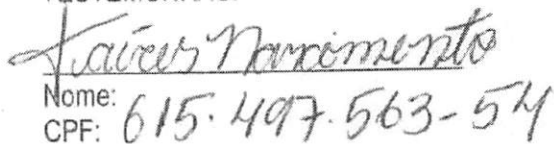 Nascimento
Nome:
CPF: 615.497.563-54